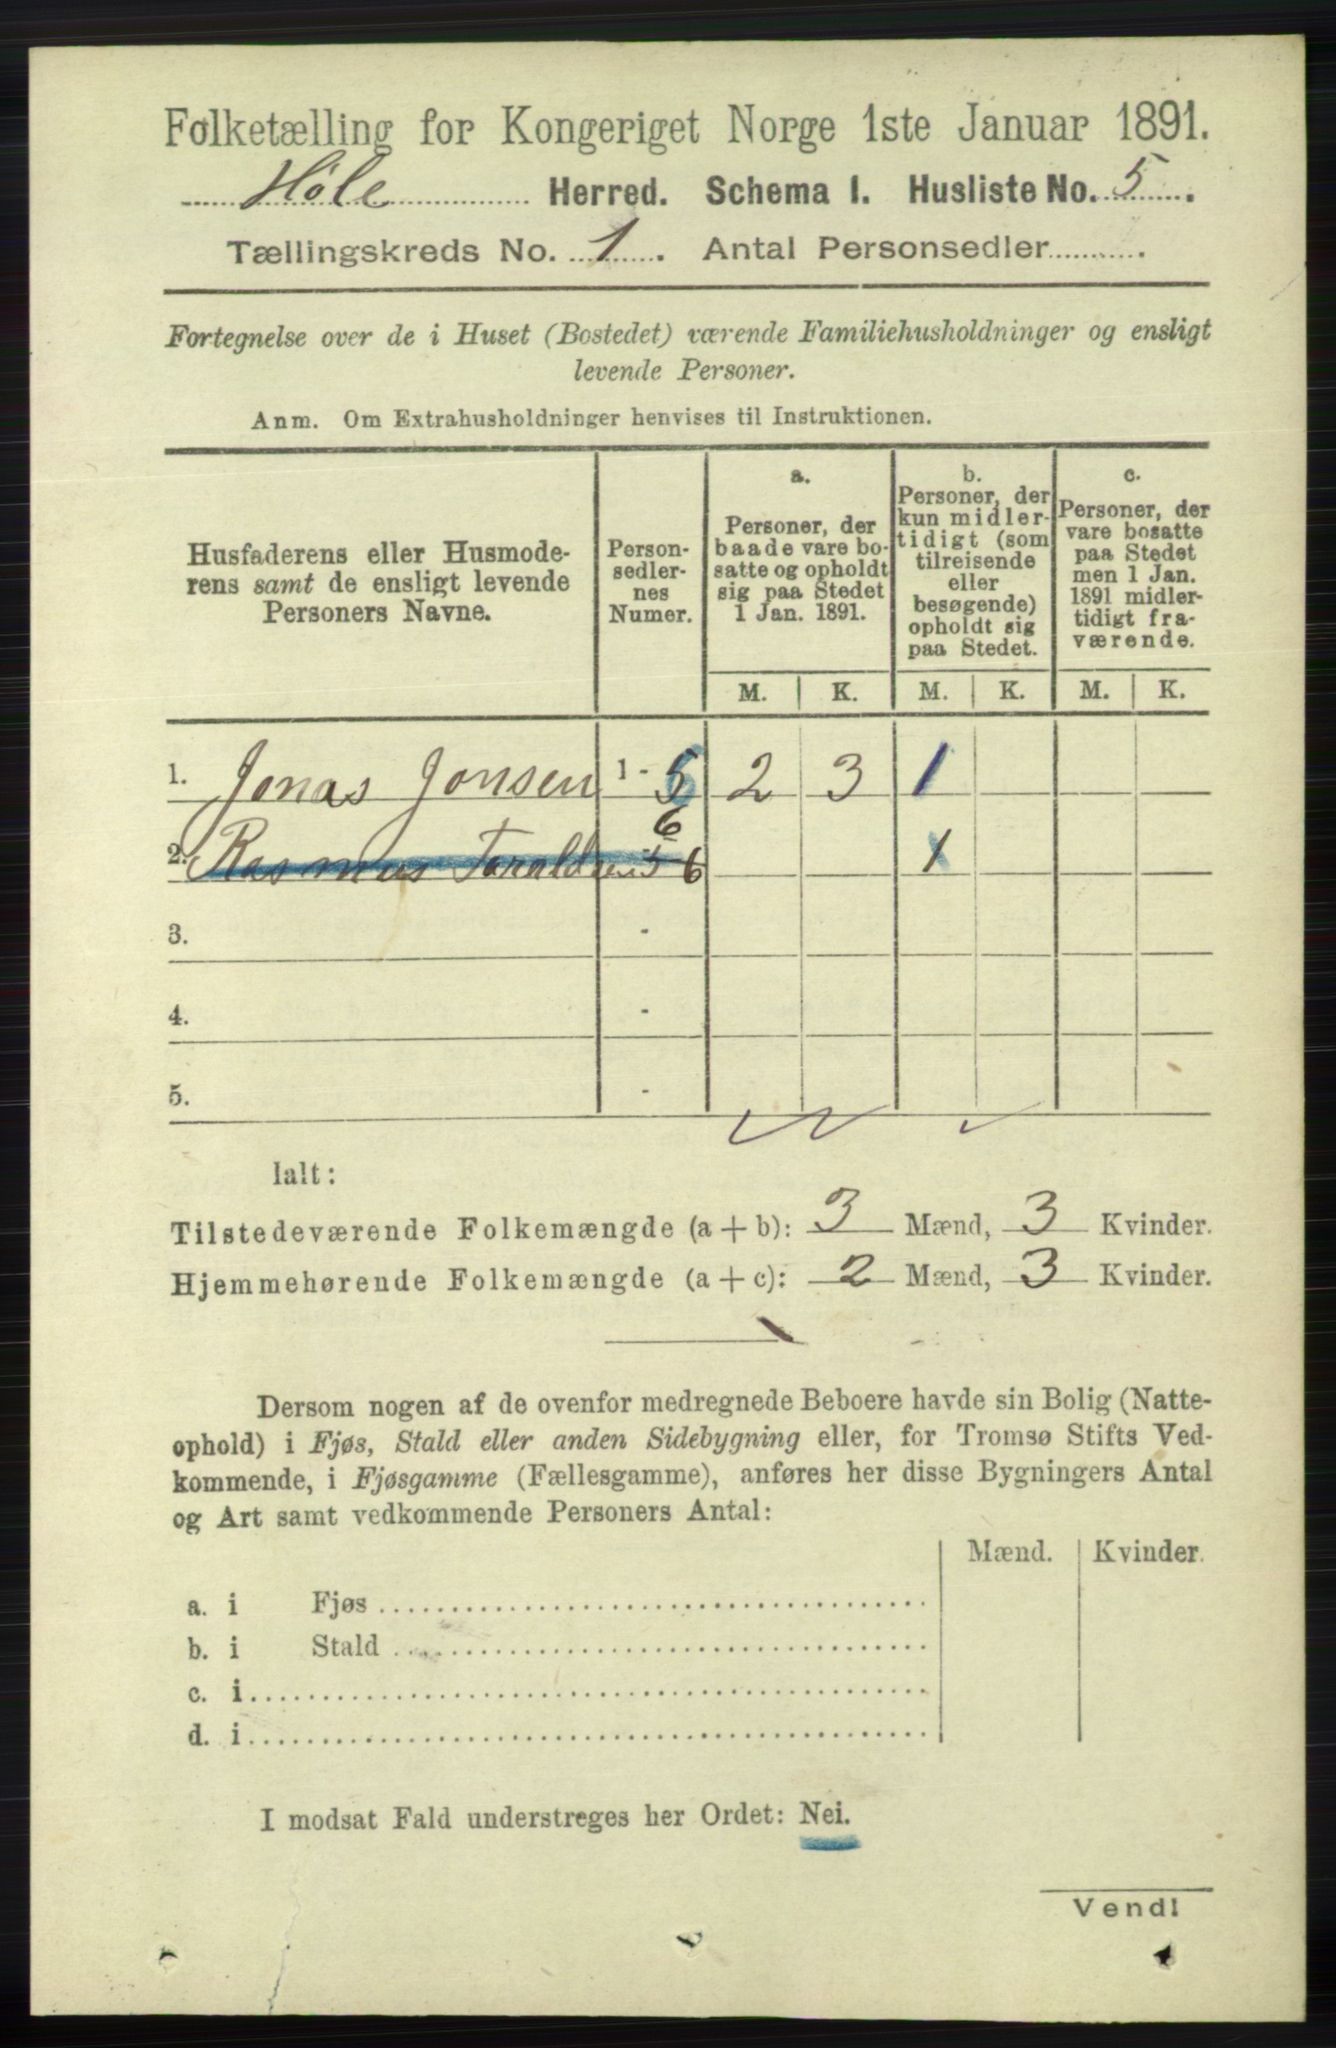 Folketælling for Kongeriget Norge 1ste Januar 1891.
Høle Herred. Schema I. Husliste No. 5.
Tællingskreds No. 1. Antal Personsedler.
Fortegnelse over de i Huset (Bostedet) værende Familiehusholdninger og ensligt
levende Personer.
Anm. Om Extrahusholdninger henvises til Instruktionen.
Husfaderens eller Husmode-
rens samt de ensligt levende
Personers Navne.
Person-
sedler-
nes
Numer.
a.
Personer, der
baade vare bo-
satte og opholdt
sig paa Stedet
1 Jan. 1891.
b.
Personer, der
kun midler-
tidigt (som
tilreisende
eller
besøgende)
opholdt sig
paa Stedet.
c.
Personer, der
vare bosatte
paa Stedet
men 1 Jan.
1891 midler-
tidigt fra-
værende.
M. K. M. K. M. K.
1. Jonas Jonsen 1 - 5 2 3 1
6
2. Rasmus Taraldsen 5 6 1
3. -
4. -
5. -
Ialt:
Tilstedeværende Folkemængde (a + b): 3 Mænd, 3 Kvinder.
Hjemmehørende Folkemængde (a + c): 2 Mænd, 3 Kvinder.
Dersom nogen af de ovenfor medregnede Beboere havde sin Bolig (Natte-
ophold) i Fjøs, Stald eller anden Sidebygning eller, for Tromsø Stifts Ved-
kommende, i Fjøsgamme (Fællesgamme), anføres her disse Bygningers Antal
og Art samt vedkommende Personers Antal:
Mænd. Kvinder.
a. i Fjøs
b. i Stald
c. i
d. i
I modsat Fald understreges her Ordet: Nei.
Vend!